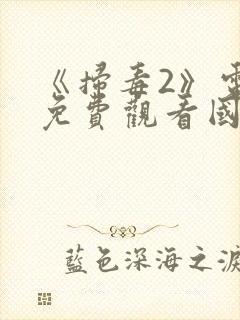 《掃毒2》電
免費觀看國
藍色深海之淚